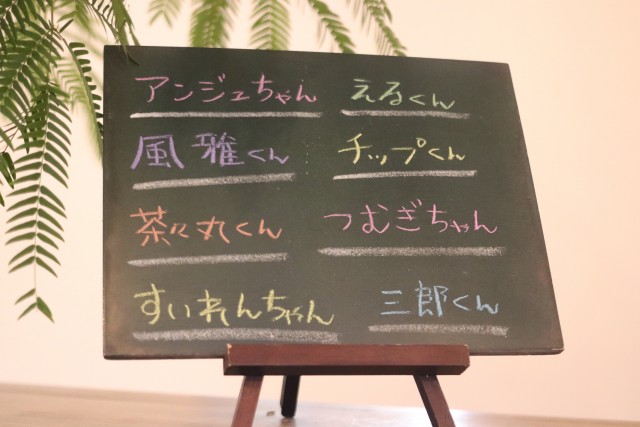 アンジュちゃん えるくん
風雅くん チップくん
茶々丸くん つむぎちゃん
すいれんちゃん 三郎くん